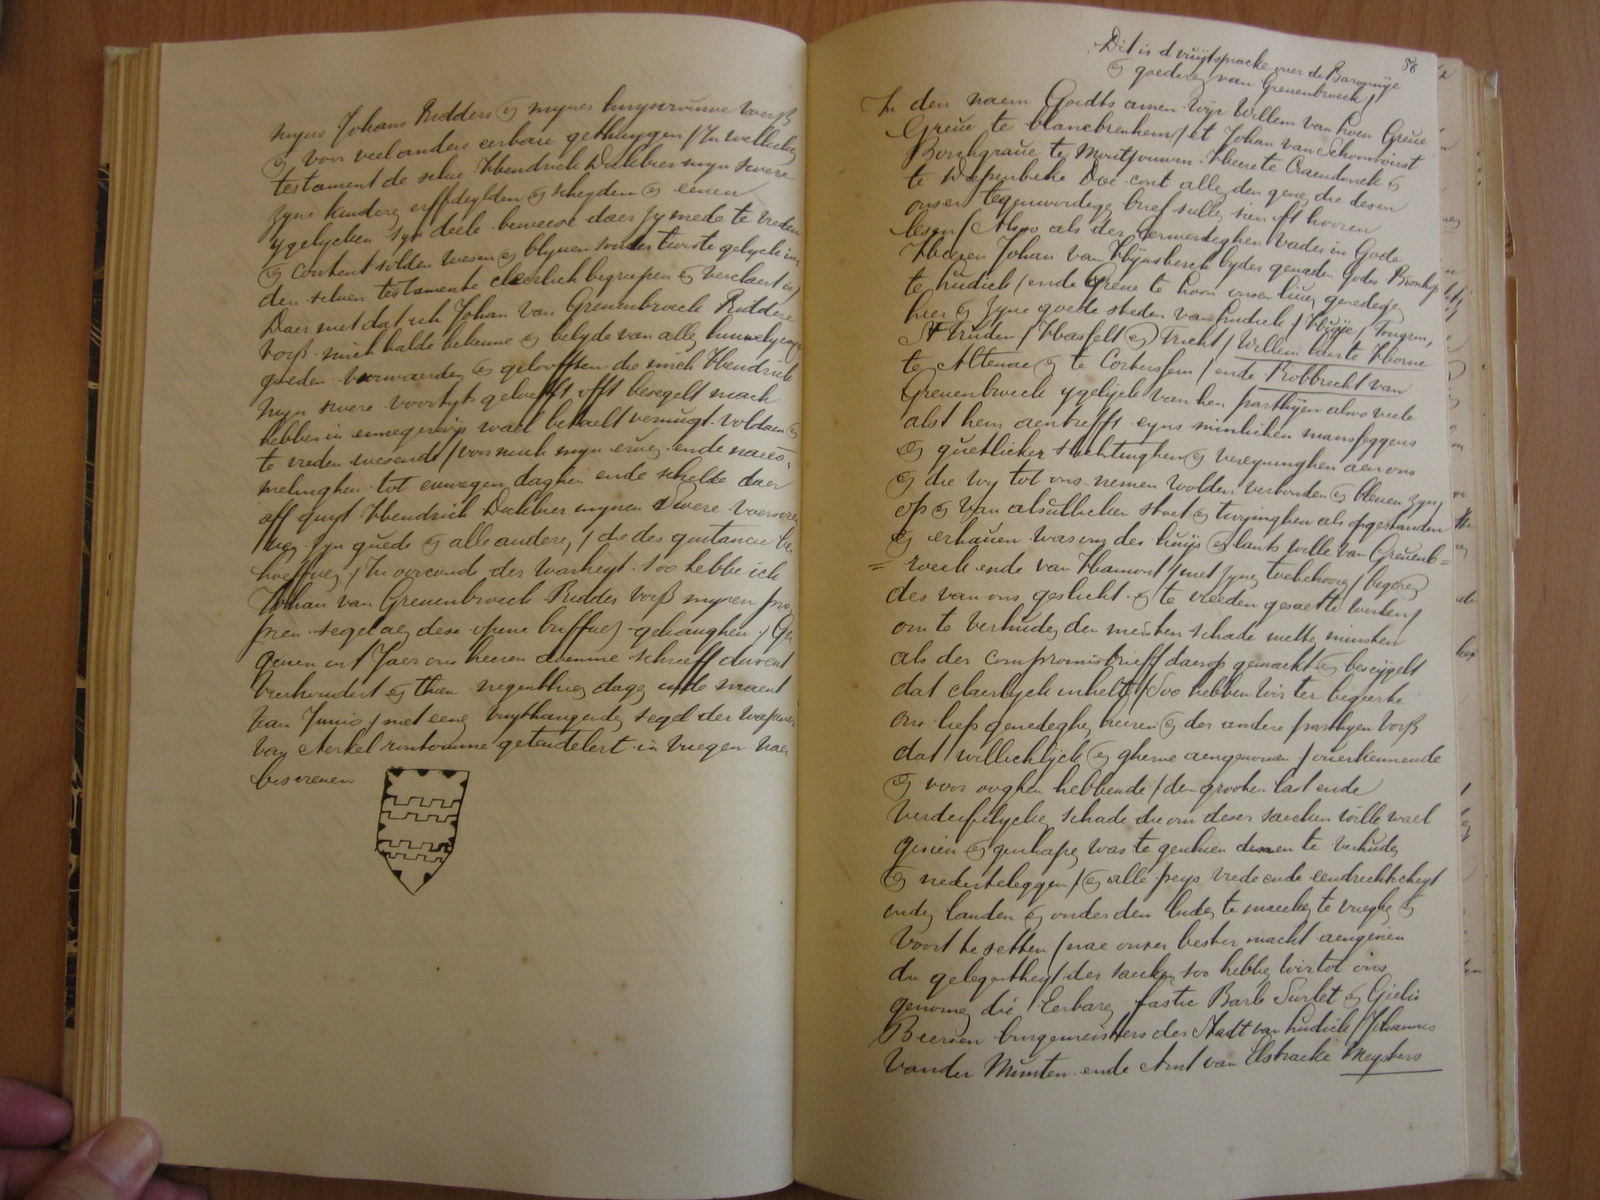 myns Johans Ridders en mynes huysvrouwe vorß
en voor veel andere eerbare gethuygen / In wellicke
testament de selve Hendrick Dabbier myn swere
zyne kindere erffdeylden en scheyden en eenen
ygelycken syn deele beweese daer zy mede te vreden
en content solden wesen en blyven sonder twiste gelyck in
den selven testamente cleerlick begrepen en verclaert is /
Daer met dat ick Johan van Grevenbroeck Ridder
vorß mich halde bekenne en belyde van alle huwelycx
goeden vorwaerden en geloofften die mich Hendrick
myn swere voortyts gelooft, offt besegelt mach
hebben in eenegerwys wael betaelt vernuegt voldaen en
te vreden wesende / voer mich myn erven ende naeco=
melinghen tot euwegen daghen ende schelde daer
off quyt Hendrick Dabbier mynen Swere voerscre
ven syn guede en alle andere / die des quitancie be
hoeffven / In oorconde der warheyt soo hebbe ick
Johan van Grevenbroeck Ridder vorß mynen pro
pren segel aen dese opene brieffve gehanghen / Ge
geven int Jaer ons heeren doemme schreeff dusent
vierhondert en thien negenthien dage inde maent
van Junio / met eene vuythangende segel der wapenen
van Aerkel rontomme getandelert in vuegen naer
bescreven
Dit is d'vuytspracke over de Baronnije
en goedere van Grevenbroeck /
56
In den naem Goidts amen Wyr Willem van hoen Greve
Greve te blanckenheim / et Johan van Schoonvorst
Borchgrave te Montjouwen Heere te Craendonck en
te Diepenbeke Doe cont allen den genen die desen
onsen tegenwordige brief sullen sien oft hooren
lesen / Alsoo als der eerwerdeghen vader in Gode
Heeren Johan van Heynsberch byder genaden Gods Bisschop
te Ludick / ende Greve te Loon onsen lieve genedege
hier en zyne goede steden van Ludick / Huye / Tongren,
St truden / Hasselt en Tricht / Willem here te Horne
te Altenae en te Cortersem / ende Robbrecht van
Grevenbroeck ygelyck van hen parthyen alsoo vele
alst hem aentrefft eyns minlichen mansseggens
en guetlicker slichtinghen en vereyninghen aen ons
en die wy tot ons nemen wolden verbonden en bleven zyn /
op en van alsullicken stoet en twyinghen als opgestanden
en erhaven was om des huys en lants wille van Grevenb=
= roeck ende van Hamont / met zyne toebehoere / begere
des van ons geslicht en te vreeden gesaet te werden /
om te verhuden den meisten schade mette minsten
als der compromisbrieff daerop gemackt en besyegelt
dat claerlyck inhelt / Soo hebben wir ter begeerte
ons ließ genedeghe heeren en der andere parthyen vorß
dat willichlyck en gherne aengenomen / overkennende
en voor ooghen hebbende / den grooten last ende
verderfelycke schade die om deser saecken wille wael
gesien en geschapen was te geschien dissen te verhuden
en nederteleggen / en alle peys vrede ende eendrechticheyt
onder landen en onder den luden te maecken te vueghe en
voort te setten / nae onser bester macht aengesien
die gelegentheyt der saecken soo hebben wir tot ons
genomen die Eerbare fastre Baré Surlet en Gielis
Beersen burgemeisters der Stadt van Ludick / Johannes
vander Munten ende Arnt van Elstracke Meysters